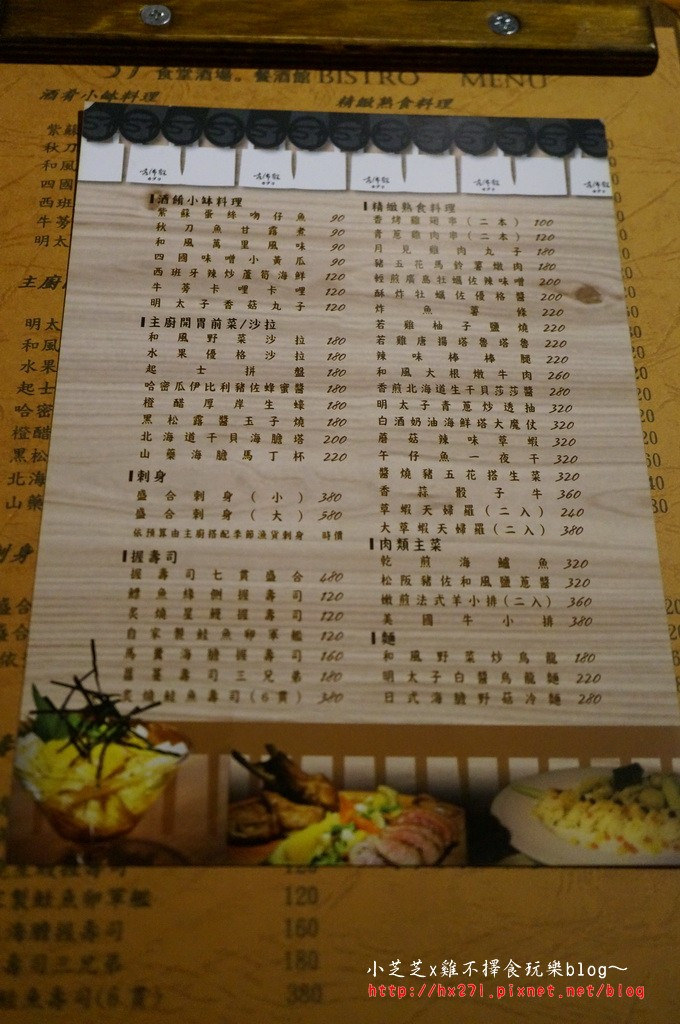 食堂酒場。餐酒館 BISTRO MENU
酒肴小缽料理
精緻熟食料理
酒餚小缽料理
紫蘇蛋絲吻仔魚 90
秋刀魚甘露煮 90
和風萬里風味 90
四國味噌小黃瓜 90
西班牙辣炒蘆筍海鮮 120
牛蒡卡哩卡哩 120
明太子香菇丸子 180
主廚開胃前菜/沙拉
和風野菜沙拉 180
水果優格沙拉 180
起士拼盤 180
哈密瓜伊比利豬佐蜂蜜醬 180
橙醋厚岸生蠔 180
黑松露醬玉子燒 180
北海道干貝海膽塔 200
山藥海膽馬丁杯 220
刺身
盛合刺身(小) 380
盛合刺身(大) 580
依預算由主廚搭配季節漁貨刺身 時價
握壽司
握壽司七貫盛合 480
鰈魚緣側握壽司 120
炙燒星鰻握壽司 120
自家製鮭魚卵軍艦 120
馬糞海膽握壽司 160
蘿蔓壽司三兄弟 180
炙燒鮭魚壽司(6貫) 380
精緻熟食料理
香烤雞翅串(二本) 100
青蔥雞肉串(二本) 120
月見雞肉丸子 180
豬五花馬鈴薯燉肉 180
輕煎廣島牡蠣佐辣味噌 200
酥炸牡蠣佐優格醬 200
炸魚薯條 220
若雞柚子鹽燒 220
若雞唐揚塔魯塔魯 220
辣味棒棒腿 220
和風大根燉牛肉 260
香煎北海道生干貝莎莎醬 280
明太子青蔥炒透抽 320
白酒奶油海鮮塔大魔仗 320
蘑菇辣味草蝦 320
午仔魚一夜干 320
醬燒豬五花搭生菜 320
香蒜骰子牛 360
草蝦天婦羅(二入) 240
大草蝦天婦羅(二入) 380
肉類主菜
乾煎海鱸魚 320
松阪豬佐和風鹽蔥醬 320
嫩煎法式羊小排(二入) 360
美國牛小排 380
麵
和風野菜炒烏龍 180
明太子白醬烏龍麵 220
日式海膽野菇冷麵 280
120
120
160
180
380
小芝芝x雞不擇食玩樂blog～
http://hx271.pixnet.net/blog